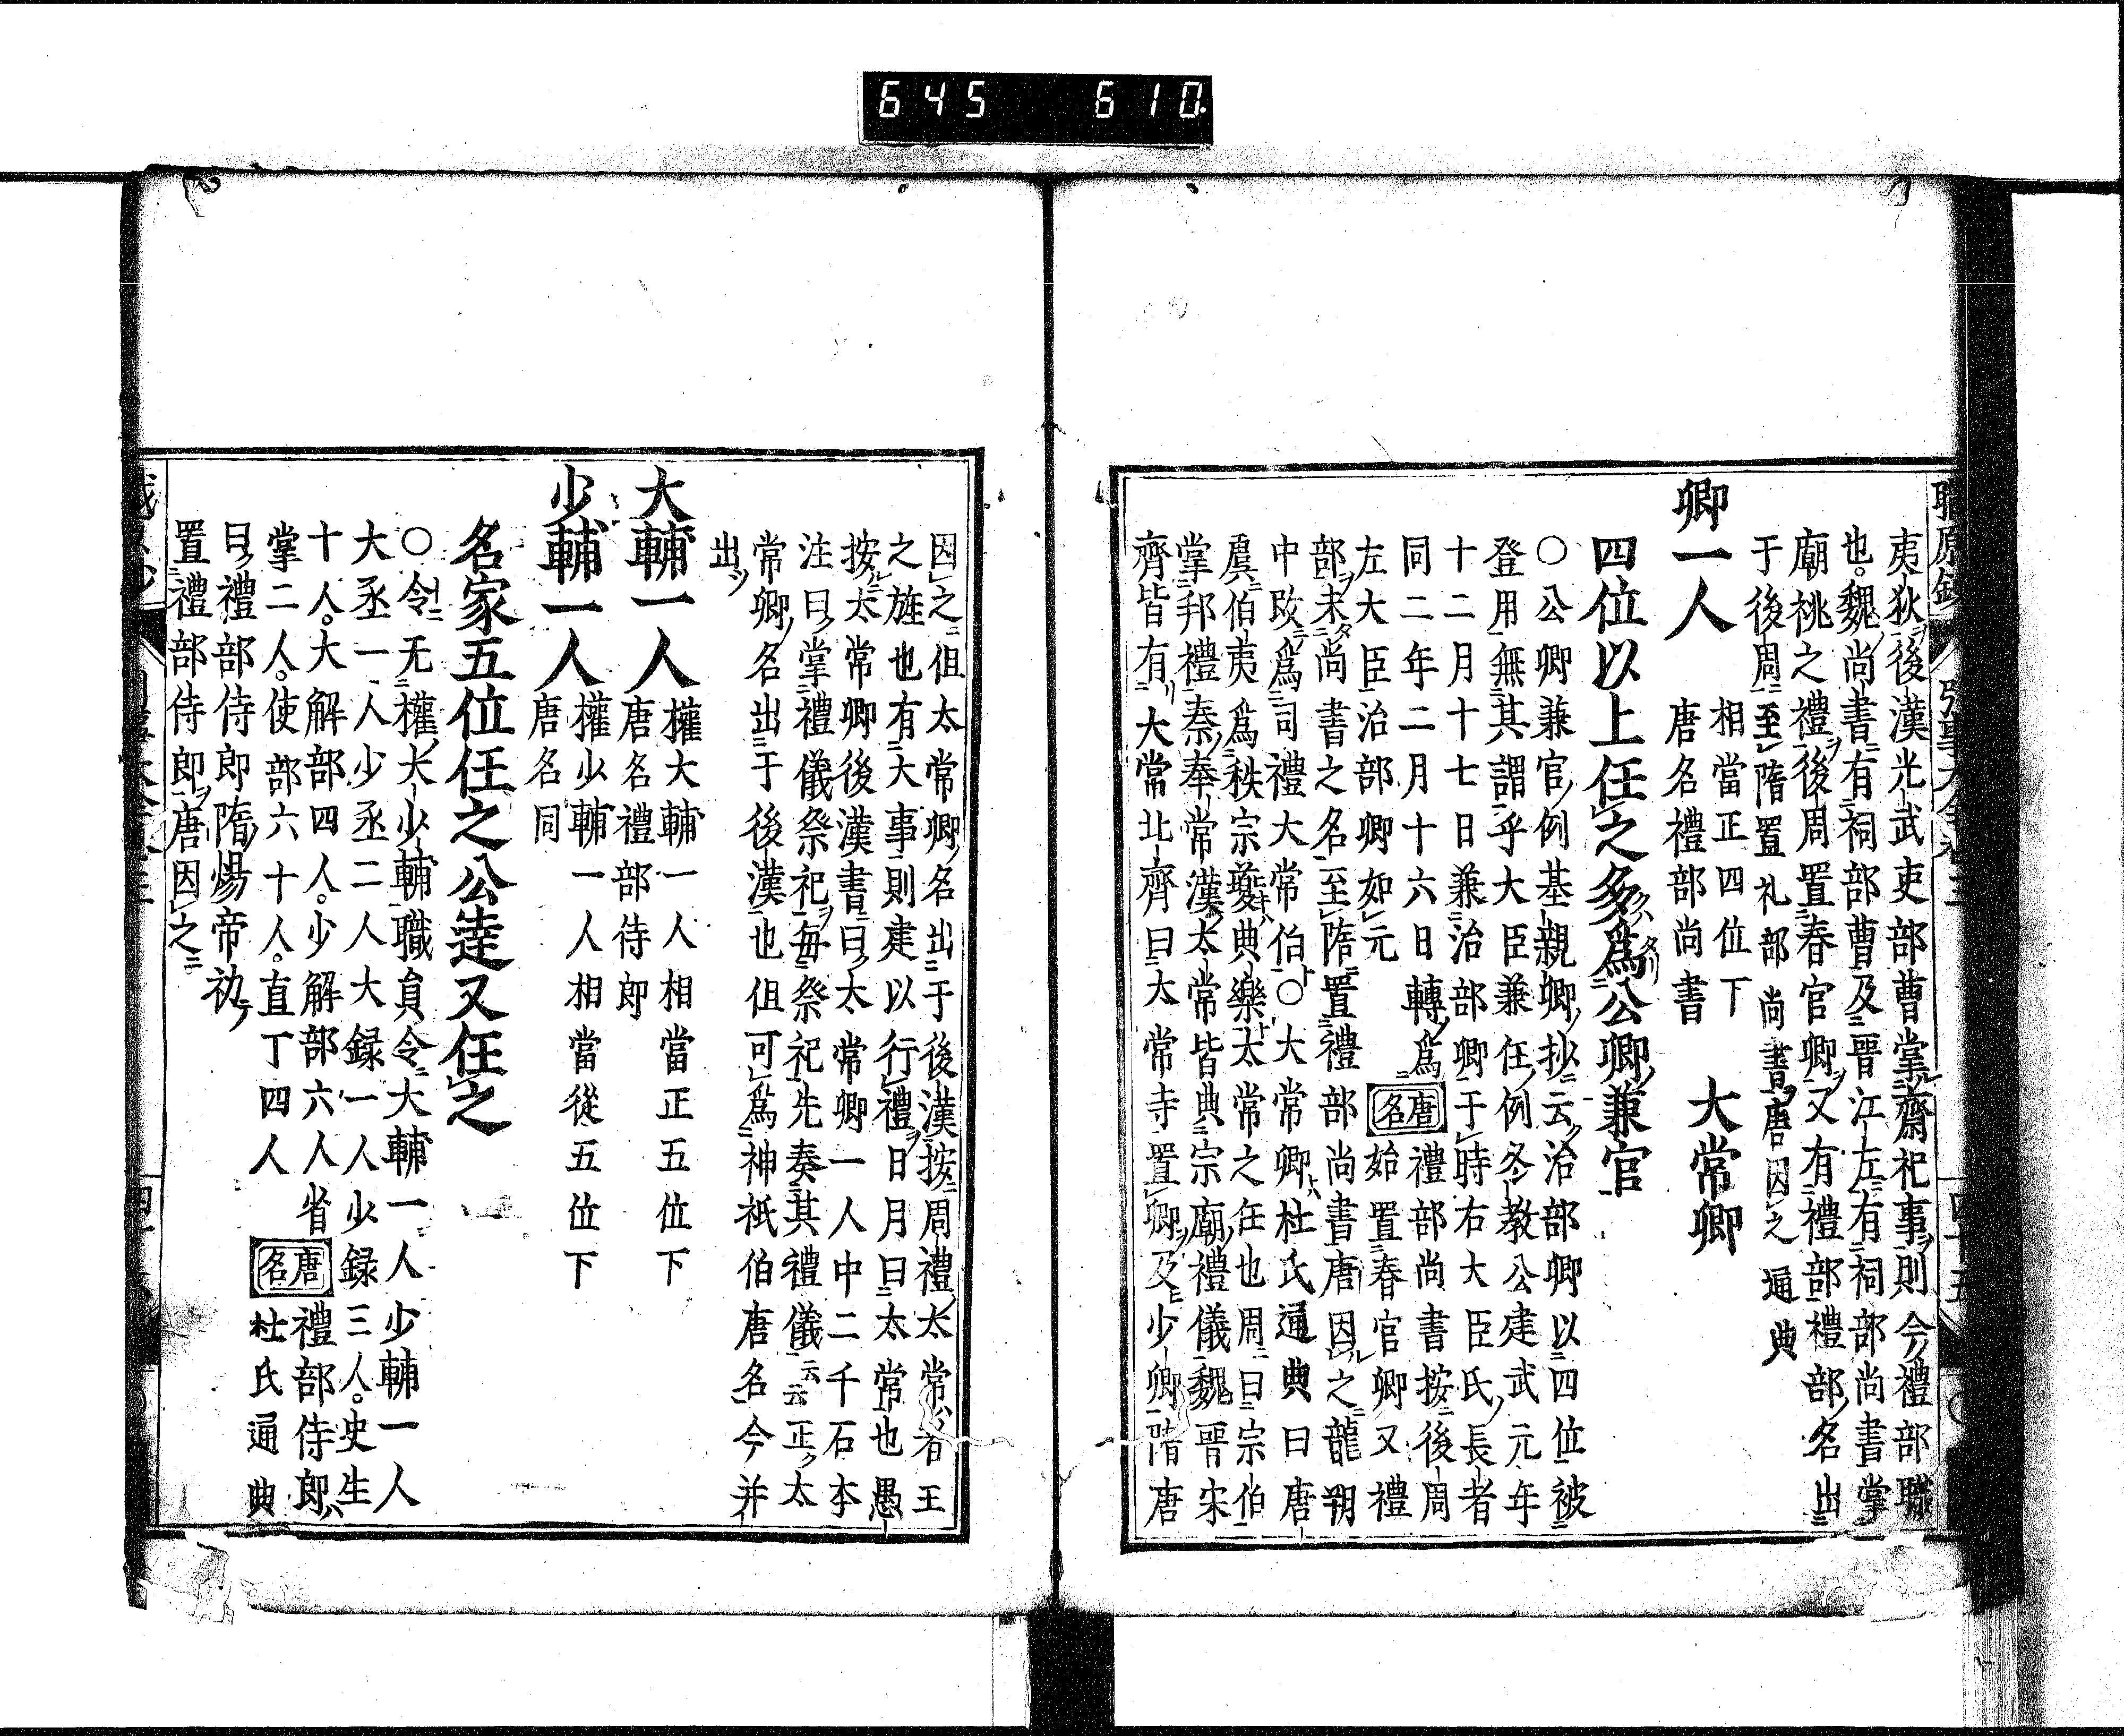 645 610
夷狄後漢光武吏部曹掌齋祀事則今禮部職
也魏尚書有祠部曹及晋江左有祠部尚書掌
廟桃之禮後周置春官卿又有禮部禮部名出
于後周至隋置礼部尚書唐因之通典
卿一人 相當正四位下 大常卿
唐名禮部尚書
四位以上任之多爲公卿兼官
○公卿兼官例基親卿抄云治部卿以四位被
登用無其謂乎大臣兼任例冬教公建武元年
十二月十七日兼治部卿于時右大臣氏長者
同二年二月十六日轉爲唐名禮部尚書按後周
左大臣治部卿如元 始置春官卿又禮
部未尚書之名至隋置禮部尚書唐因之龍朔
中改爲司禮大常伯○大常卿杜氏通典曰唐
虞伯夷爲秩宗夔典樂太常之任也周曰宗伯
掌邦禮秦奉常漢太常皆典宗廟禮儀魏晋宋
齊皆有大常北齊曰大常寺置卿及少卿隋唐
因之但太常卿名出于後漢按周禮太常者王
之旌也有大事則建以行禮日月曰太常也愚
按太常卿後漢書曰太常卿一人中二千石本
注曰掌禮儀祭祀毎祭祀先奏其禮儀云云正太
常卿名出于後漢也但可爲神祇伯唐名今并
出
大輔一人 權大輔一人相當正五位下
唐名禮部侍郎
少輔一人 權少輔一人相當從五位下
唐名同
名家五位任之公達又任之
○令无權大少輔職員令大輔一人少輔一人
大丞一人少丞二人大録一人少録三人史生
十人大解部四人少解部六人省 唐名 禮部侍郎
掌二人使部六十人直丁四人 杜氏通典
曰禮部侍郎隋煬帝初
置禮部侍郎唐因之